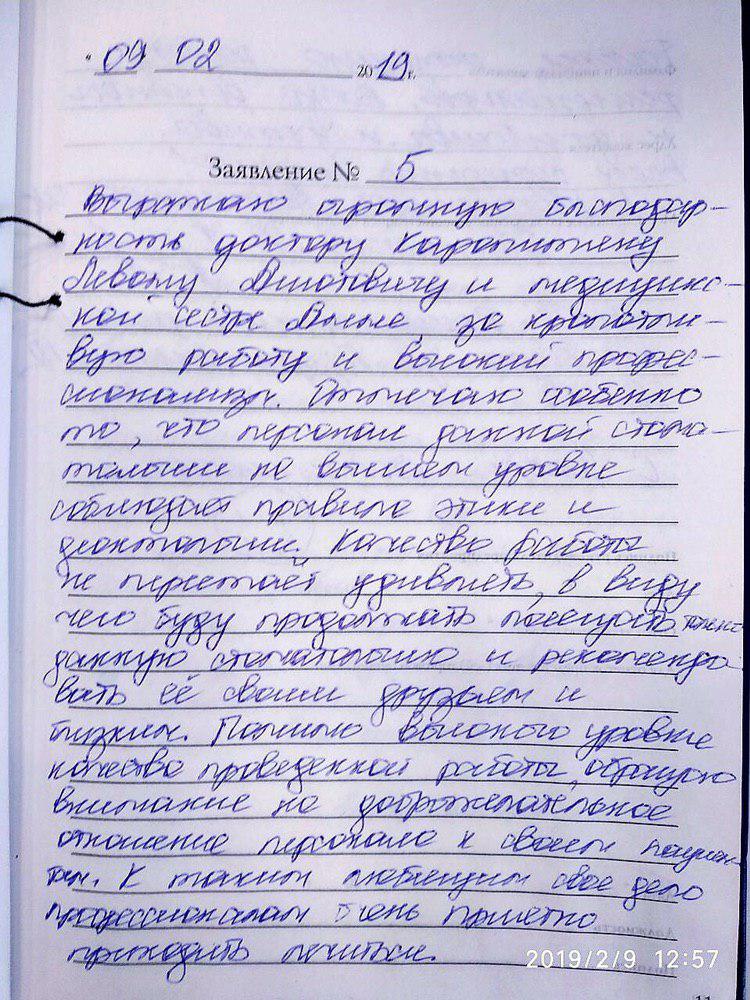 " 09 02 2019 г.
Заявление № 5
Выражаю огромную благодар-
ность доктору
Левону Ашотовичу и медицинс-
кой сестре за кропотли-
вую работу и высокий профес-
сионализм. Отмечаю особенно
то, что персонал данной стома-
тологии на высшем уровне
соблюдает правила этики и
деонтологии. Качество работы
не перестаёт удивлять, в виду
чего буду продолжать посещать
данную стоматологию и рекомендо-
вать её своим друзьям и
близким. Помимо высокого уровня
качества проведенной работы, обращаю
внимание на доброжелательное
отношение персонала к своим пациен-
там. К таким любящим свое дело
профессионалам очень приятно
приходить лечиться.
2019/2/9 12:57
11